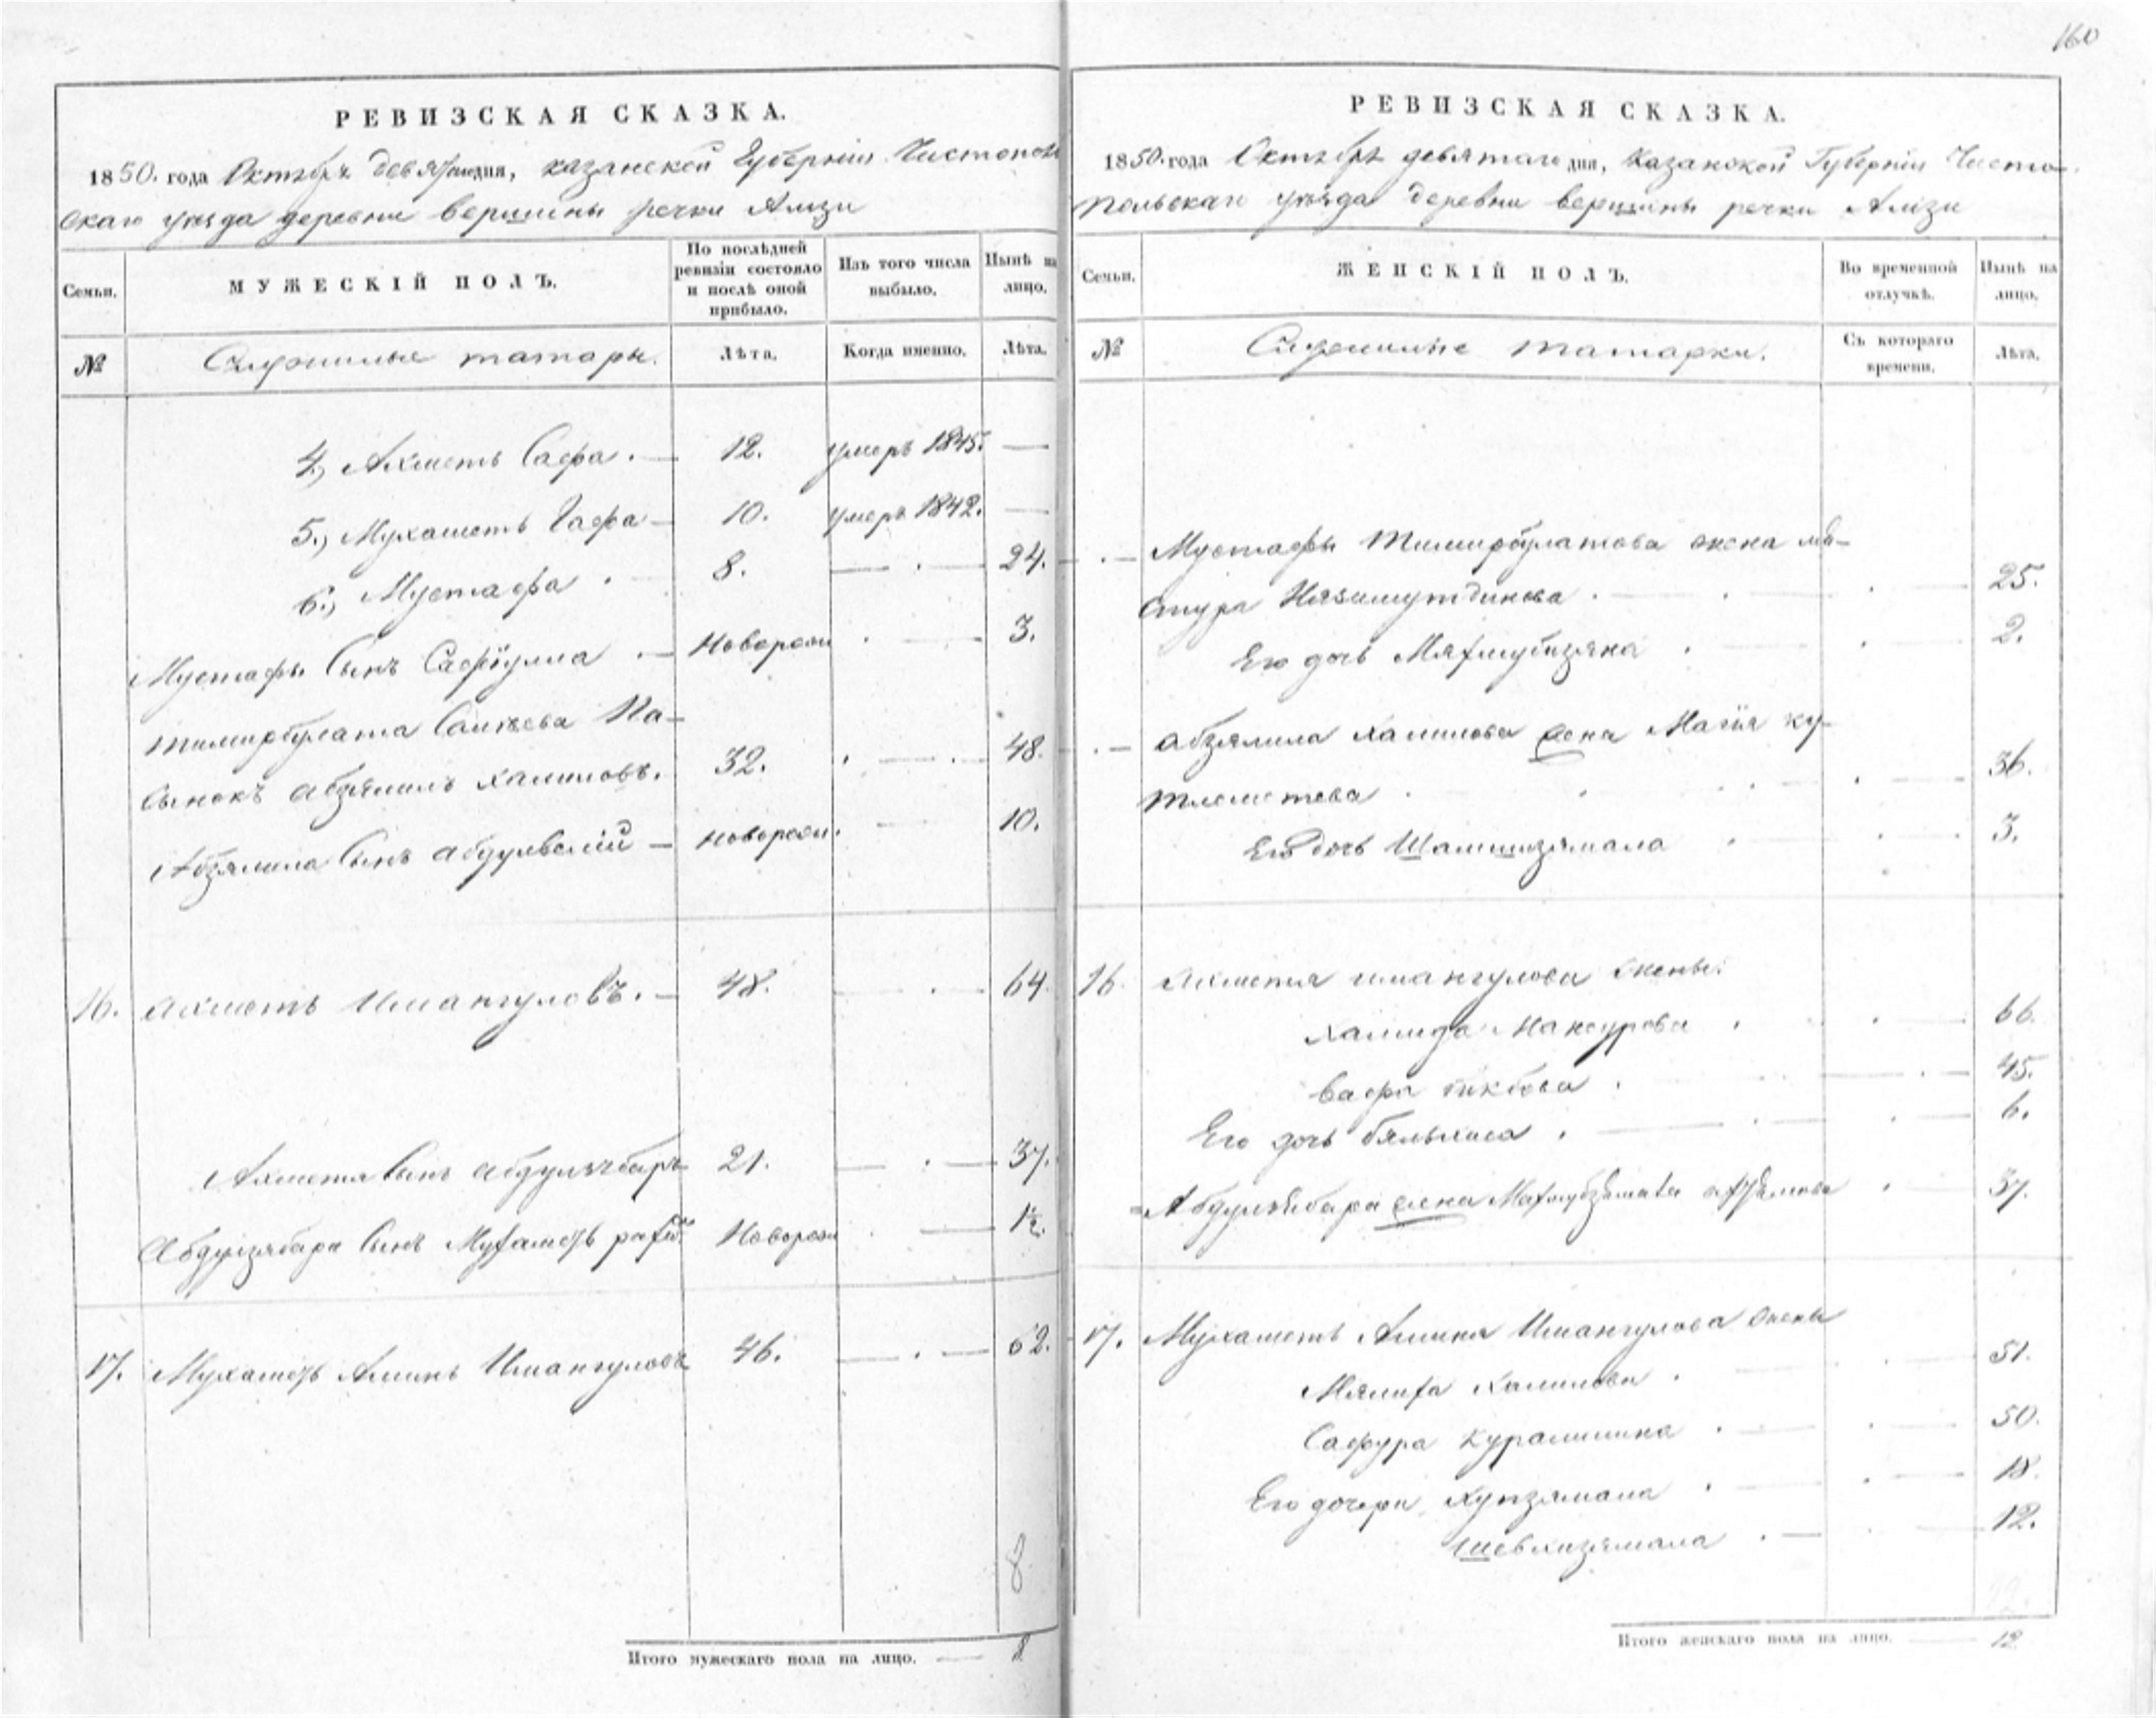 160
РЕВИЗСКАЯ СКАЗКА.
1850. года Октября девятаго дня, казанской Губерніи Чистополь
скаго уѣзда деревни вершины речки Алзи
Семьи.
МУЖЕСКІЙ ПОЛЪ.
По послѣдней
ревизіи состояло
и послѣ оной
прибыло.
Изъ того числа
выбыло.
Нынѣ на
лицо.
№
Служилые татары.
Лѣта.
Когда именно.
Лѣта.
4, Ахметь Сафа. 12. умеръ 1845. —
5., Мухаметь Гафа 10. умеръ 1842. —
6., Мустафа 8. — 24.
Мустафы Сынъ Сафіулла Новорож 3.
тимирбулата Са Пла-
сынокъ абзялилъ халиловъ. 32. 48.
Абзялила Сынъ абдулвалій новорож. 10.
16. ахметь Имангуловъ. 48. 64.
Ахметя Сынъ абдулзябаръ 21. 37.
Абдулзябара Сынъ Мухаметь 	Новорож 1½.
17. Мухаметь Аминь Имангуловъ 46. 62.
8
Итого мужескаго пола на лицо. 8
РЕВИЗСКАЯ СКАЗКА.
1850. года Октября девятаго дня, Казанской Губерніи Чисто-
польскаго уѣзда деревни вершины речки Алзи
Семьи.
ЖЕНСКІЙ ПОЛЪ.
Во временной
отлучкѣ.
Нынѣ на
лицо.
№
Служилые татарки.
Съ котораго
времени.
Лѣта.
Мустафы Тимирбулатова жена
Низамутдинова 25.
Его дочь 2.
абзялила халилова жена Магія ку-
тламетева 36.
Его дочь Шамшизямала 3.
16. Ахметя имангулова жены:
Хамида Мансурова 66.
45.
Его дочь бяльхиса 6.
Абдулзябара жена 37.
17. Мухаметь Амина Имангулова жены
Халилова 51.
Сафура Курамшина 50.
Его дочери, Хупзямала 18.
Шевхизямала 12.
Итого женскаго пола на лицо. 12